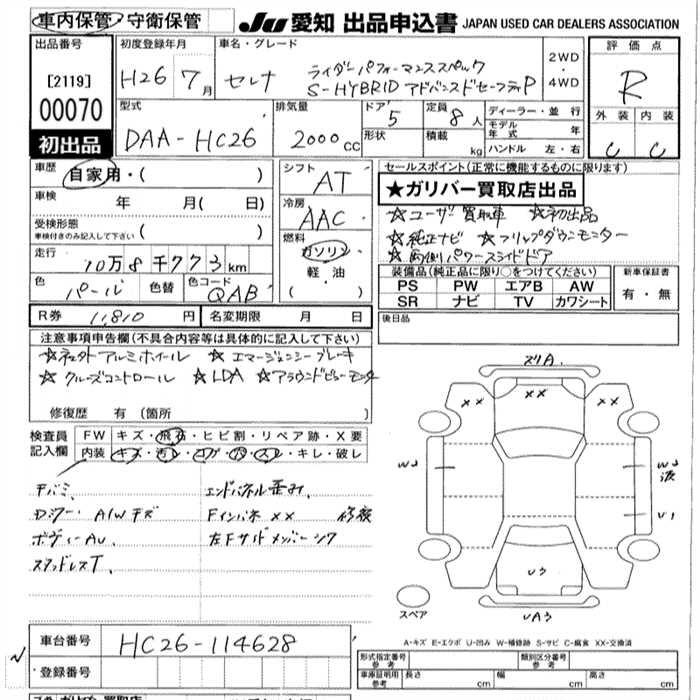 車内保管・守衛保管
JU 愛知 出品申込書 JAPAN USED CAR DEALERS ASSOCIATION
出品番号
[2119]
00070
初出品
初度登録年月
H26 7月
車名・グレード
セレナ
ライダーパフォーマンススペック
S-HYBRID アドバンスドセーフティP
2WD
・
4WD
評価点
R
外装 内装
C C
型式
DAA-HC26
排気量
2000cc
ドア 5
形状
定員 8人
積載 kg
ディーラー・並行
モデル年式 年
ハンドル 左・右
車歴 自家用・( )
車検 年 月( 日)
受検形態
車検付きのみ記入して下さい ( )
走行 10万8千773km
色 パール 色替 色コード QAB
R券 11,810円 名変期限 月 日
シフト AT
冷房 AAC
燃料
ガソリン
軽油
( ・ )
セールスポイント(正常に機能するものに限ります)
★ガリバー買取店出品
☆ユーザー買取車 ☆初出品
☆純正ナビ ☆フリップダウンモニター
☆両側パワースライドドア
装備品(純正品に限り○をつけてください)
PS PW エアB AW
SR ナビ TV カワシート
新車保証書
有・無
後日品
注意事項申告欄(不具合内容等は具体的に記入して下さい)
☆社外アルミホイール ☆エマージェンシーブレーキ
☆クルーズコントロール ☆LDA ☆アラウンドビューモニター
修復歴 有(箇所 )
検査員記入欄
FW キズ・飛石・ヒビ割・リペア跡・X要
内装 キズ・汚レ・コゲ・穴・スレ・キレ・破レ
エンドパネル歪み、
A/Wキズ
Fインパネ XX 修復
ボディーAU、
左Fサイドメンバーシワ
スタッドレスT、
ズリA、
XX XX XX
W2 W2
U1
U3
UA3
スペア
A-キズ E-エクボ U-凹み W-補修跡 S-サビ C-腐食 XX-交換済
車台番号 HC26-114628
登録番号
形式指定番号 参考
類別区分番号 参考
車庫証明用 参考 長さ cm 幅 cm 高さ cm